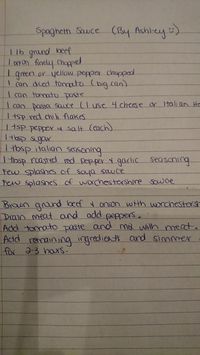 Spaghetti Sauce (By Ashley ☺)
1 lb grand beef
1 onion finely chopped
1 green or yellow pepper chopped
1 can diced tomato (big can)
1 can tomato paste
1 can passa sauce (I use 4 cheese or Italian He
1 tsp red chili flakes
1 tsp pepper & salt (each)
1 tbsp sugar
1 tbsp italian seasoning
1 tbsp roasted red pepper & garlic seasoning
few splashes of soya sauce
few splashes of worchestershire sauce
Brown grand beef & onion with worchesters
Drain meat and add peppers.
Add tomato paste and mix with meat.
Add remaining ingredients and simmer
for 2-3 hours.